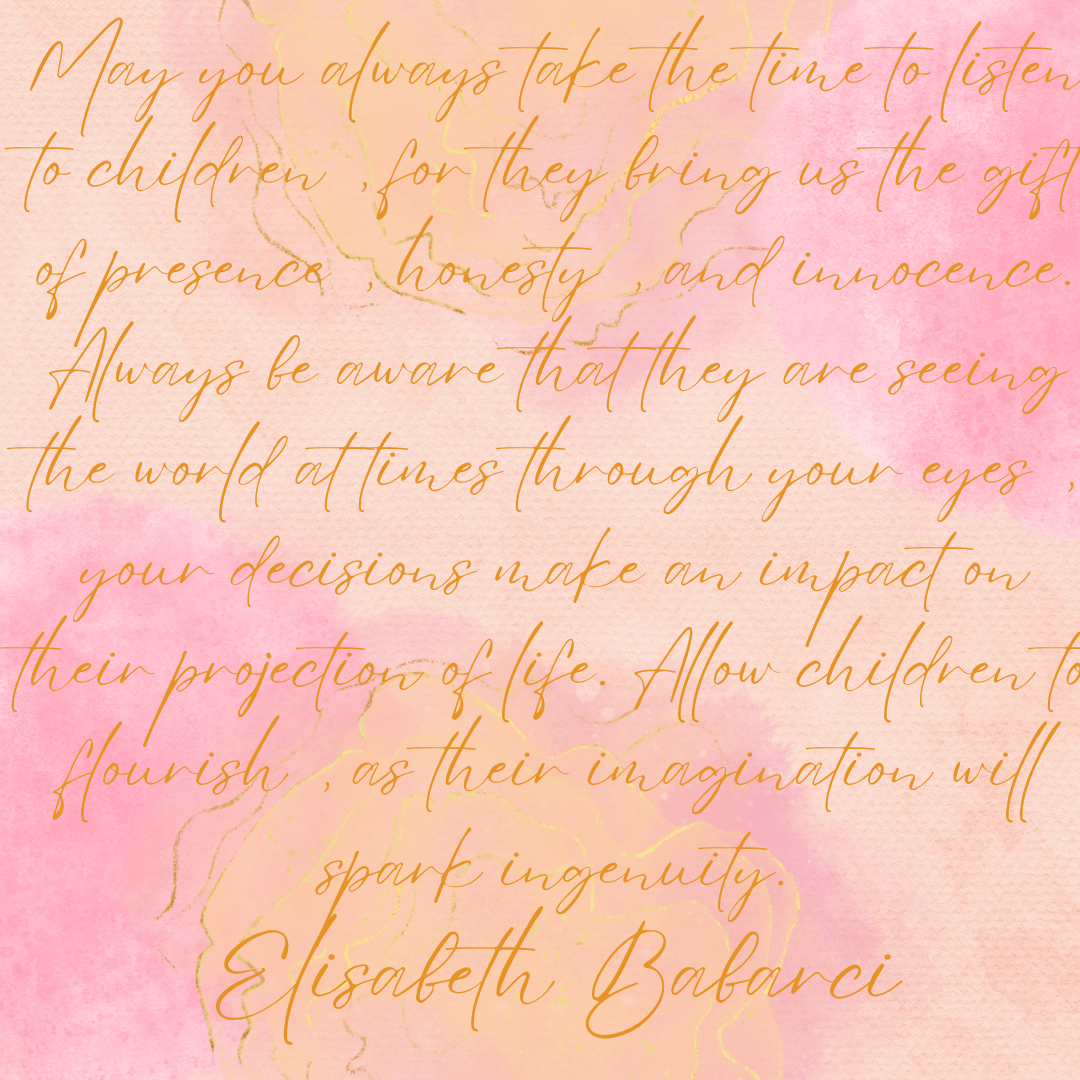 May you always take the time to listen
to children , for they bring us the gift
of presence , honesty , and innocence.
Always be aware that they are seeing
the world at times through your eyes ,
your decisions make an impact on
their projection of life. Allow children to
flourish , as their imagination will
spark ingenuity.
Elisabeth Babarci